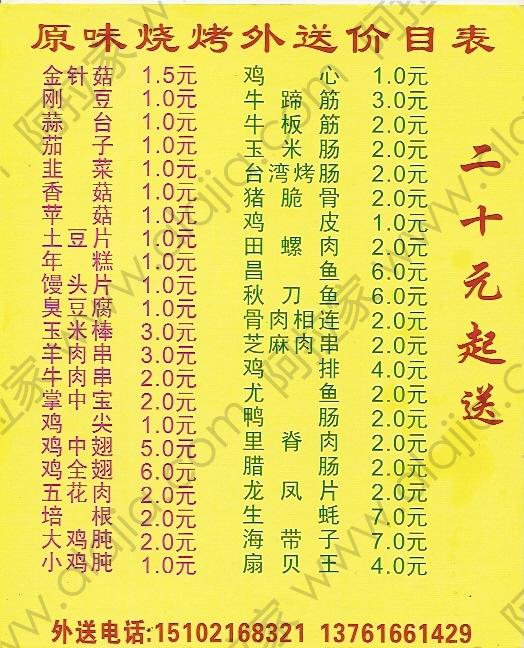 原味烧烤外送价目表
金针菇 1.5元
刚豆 1.0元
蒜台 1.0元
茄子 1.0元
韭菜 1.0元
香菇 1.0元
苹菇 1.0元
土豆片 1.0元
年糕 1.0元
馒头片 1.0元
臭豆腐 1.0元
玉米棒 3.0元
羊肉串 3.0元
牛肉串 2.0元
掌中宝 2.0元
鸡尖 1.0元
鸡中翅 5.0元
鸡全翅 6.0元
五花肉 2.0元
培根 2.0元
大鸡肫 2.0元
小鸡肫 1.0元
鸡心 1.0元
牛蹄筋 3.0元
牛板筋 2.0元
玉米肠 2.0元
台湾烤肠 2.0元
猪脆骨 2.0元
鸡皮 1.0元
田螺肉 2.0元
昌鱼 6.0元
秋刀鱼 6.0元
骨肉相连 2.0元
芝麻肉串 2.0元
鸡排 4.0元
尤鱼 2.0元
鸭肠 2.0元
里脊肉 2.0元
腊肠 2.0元
龙凤片 2.0元
生蚝 7.0元
海带子 7.0元
扇贝王 4.0元
二十元起送
外送电话:15102168321 13761661429
阿拉家 www.alajia.com